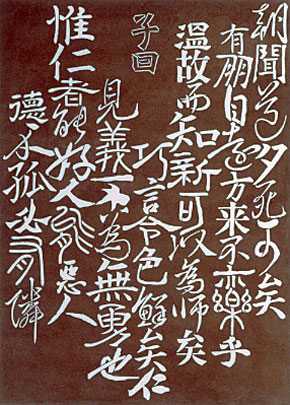 朝聞道夕死可矣
有朋自遠方来不亦樂乎
溫故而知新可以為師矣
子曰
巧言令色鮮矣仁
見義不為無勇也
惟仁者能好人能惡人
德不孤必有隣